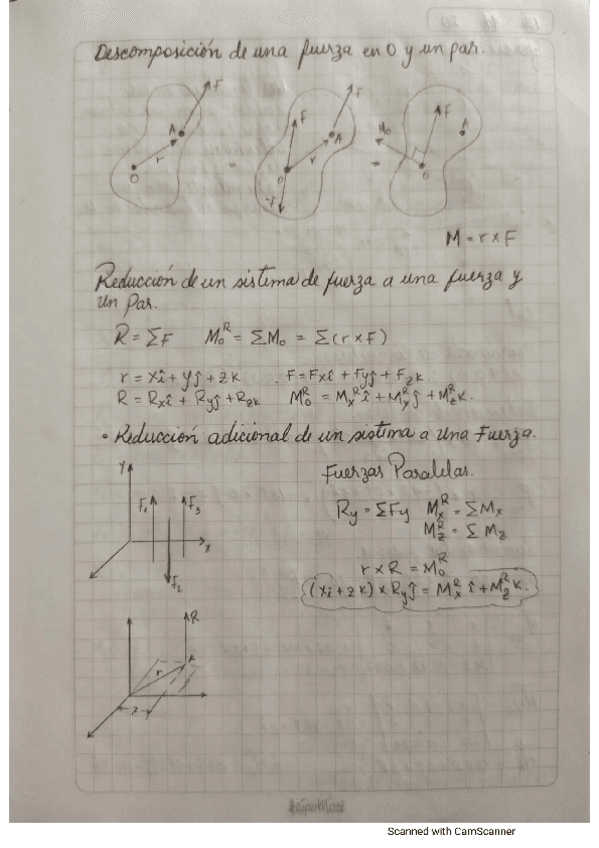 Descomposición de una fuerza en O y un par.
F
A
r
O
=
F
F
A
r
O
-F
=
Mo
F
A
O
M = r x F
Reducción de un sistema de fuerza a una fuerza y
un Par.
R = ΣF    M₀ᴿ = ΣM₀ = Σ(r x F)
r = xî + yĵ + zk    F = Fxî + Fyĵ + Fzk
R = Rxî + Ryĵ + Rzk    M₀ᴿ = Mxᴿî + Myᴿĵ + Mzᴿk.
• Reducción adicional de un sistema a una Fuerza.
Fuerzas Paralelas.
Y
F₁
F₃
x
F₂
Ry = ΣFy    Mxᴿ = ΣMx
Mzᴿ = ΣMz
r x R = M₀ᴿ
(xi + zk) x Ryĵ = Mxᴿ î + Mzᴿ k.
R
A
r
x
Scanned with CamScanner